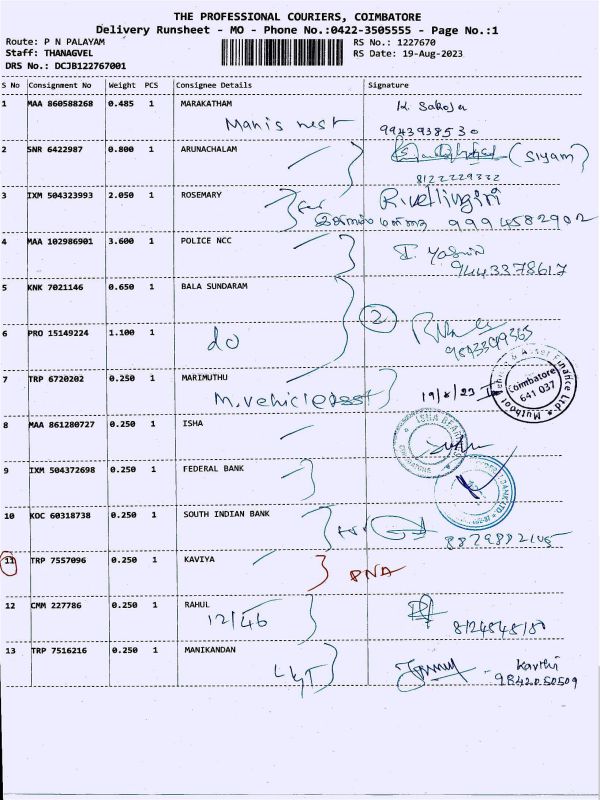 THE PROFESSIONAL COURIERS, COIMBATORE
Delivery Runsheet - MO - Phone No.:0422-3505555 - Page No.:1
Route: P N PALAYAM RS No.: 1227670
Staff: THANAGVEL RS Date: 19-Aug-2023
DRS No.: DCJB122767001
S No Consignment No Weight PCS Consignee Details Signature
1 MAA 860588268 0.485 1 MARAKATHAM
Manis nest 9943938530
2 SNR 6422987 0.800 1 ARUNACHALAM (Siyam)
8122229332
3 IXM 504323993 2.050 1 ROSEMARY
for 9994582902
4 MAA 102986901 3.600 1 POLICE NCC
9443378617
5 KNK 7021146 0.650 1 BALA SUNDARAM
2
6 PRO 15149224 1.100 1
do
7 TRP 6720202 0.250 1 MARIMUTHU
19/8/23 Coimbatore 641 037
8 MAA 861280727 0.250 1 ISHA
9 IXM 504372698 0.250 1 FEDERAL BANK
10 KOC 60318738 0.250 1 SOUTH INDIAN BANK
for
11 TRP 7557096 0.250 1 KAVIYA
DNA
12 CMM 227786 0.250 1 RAHUL
12/46
13 TRP 7516216 0.250 1 MANIKANDAN
Karthi
9842050509